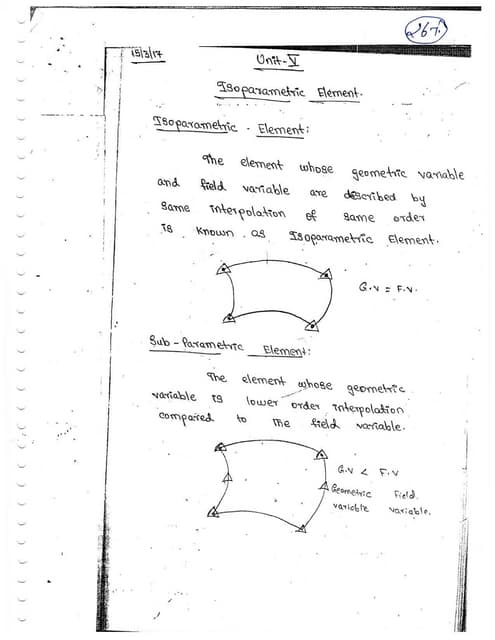 267.
15/3/17
Unit-V
Isoparametric Element.
Isoparametric - Element:
The element whose geometric variable
and field variable are described by
same interpolation of same order
is known as Isoparametric Element.
G.V = F.V.
Sub-Parametric Element:
The element whose geometric
variable is lower order interpolation
compared to the field variable.
G.V < F.V
Geometric Field
variable variable.